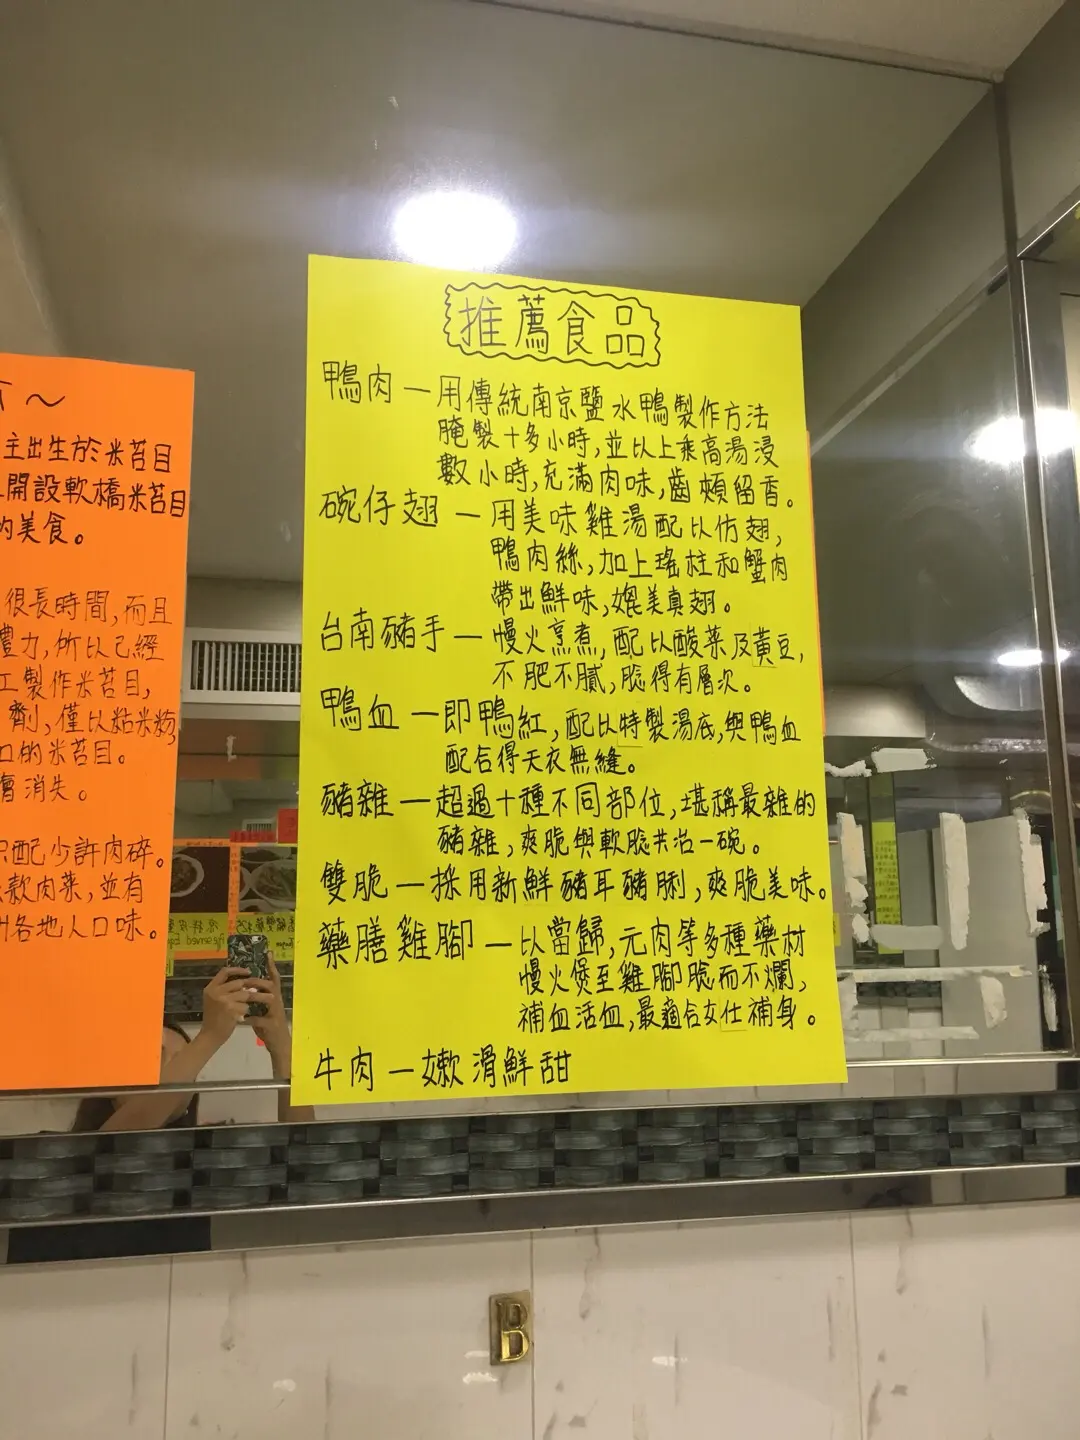 推薦食品
鴨肉 — 用傳統南京鹽水鴨製作方法
腌製十多小時,並以上乘高湯浸
數小時,充滿肉味,齒頰留香。
碗仔翅 — 用美味雞湯配以仿翅,
鴨肉絲,加上瑤柱和蟹肉
帶出鮮味,媲美真翅。
台南豬手 — 慢火烹煮,配以酸菜及黃豆,
不肥不膩,腍得有層次。
鴨血 — 即鴨紅,配以特製湯底,與鴨血
配合得天衣無縫。
豬雜 — 超過十種不同部位,堪稱最雜的
豬雜,爽脆與軟腍共冶一碗。
雙脆 — 採用新鮮豬耳豬脷,爽脆美味。
藥膳雞腳 — 以當歸,元肉等多種藥材
慢火煲至雞腳腍而不爛,
補血活血,最適合女仕補身。
牛肉 — 嫩滑鮮甜
~
主出生於米苔目
開設軟橋米苔目
的美食。
很長時間,而且
力,所以已經
工製作米苔目,
劑,僅以粘米粉
口的米苔目。
會消失。
只配少許肉碎。
款肉菜,並有
各地人口味。
B